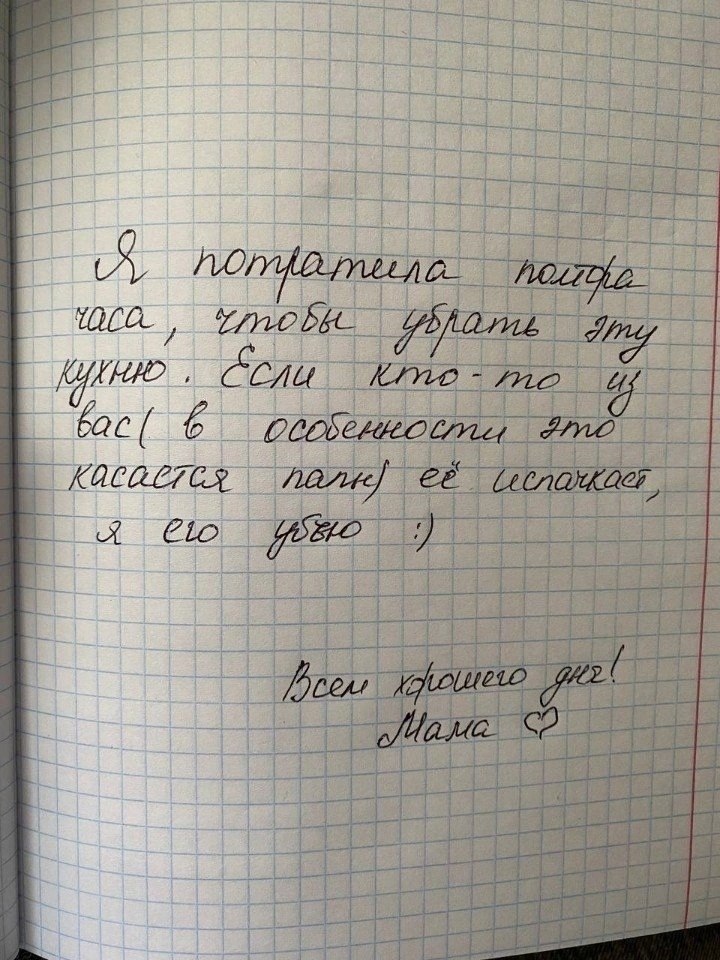 Я потратила полтора
часа, чтобы убрать эту
кухню. Если кто-то из
вас( в особенности это
касается папы) её испачкает,
я его убью :)
Всем хорошего дня!
Мама ♡